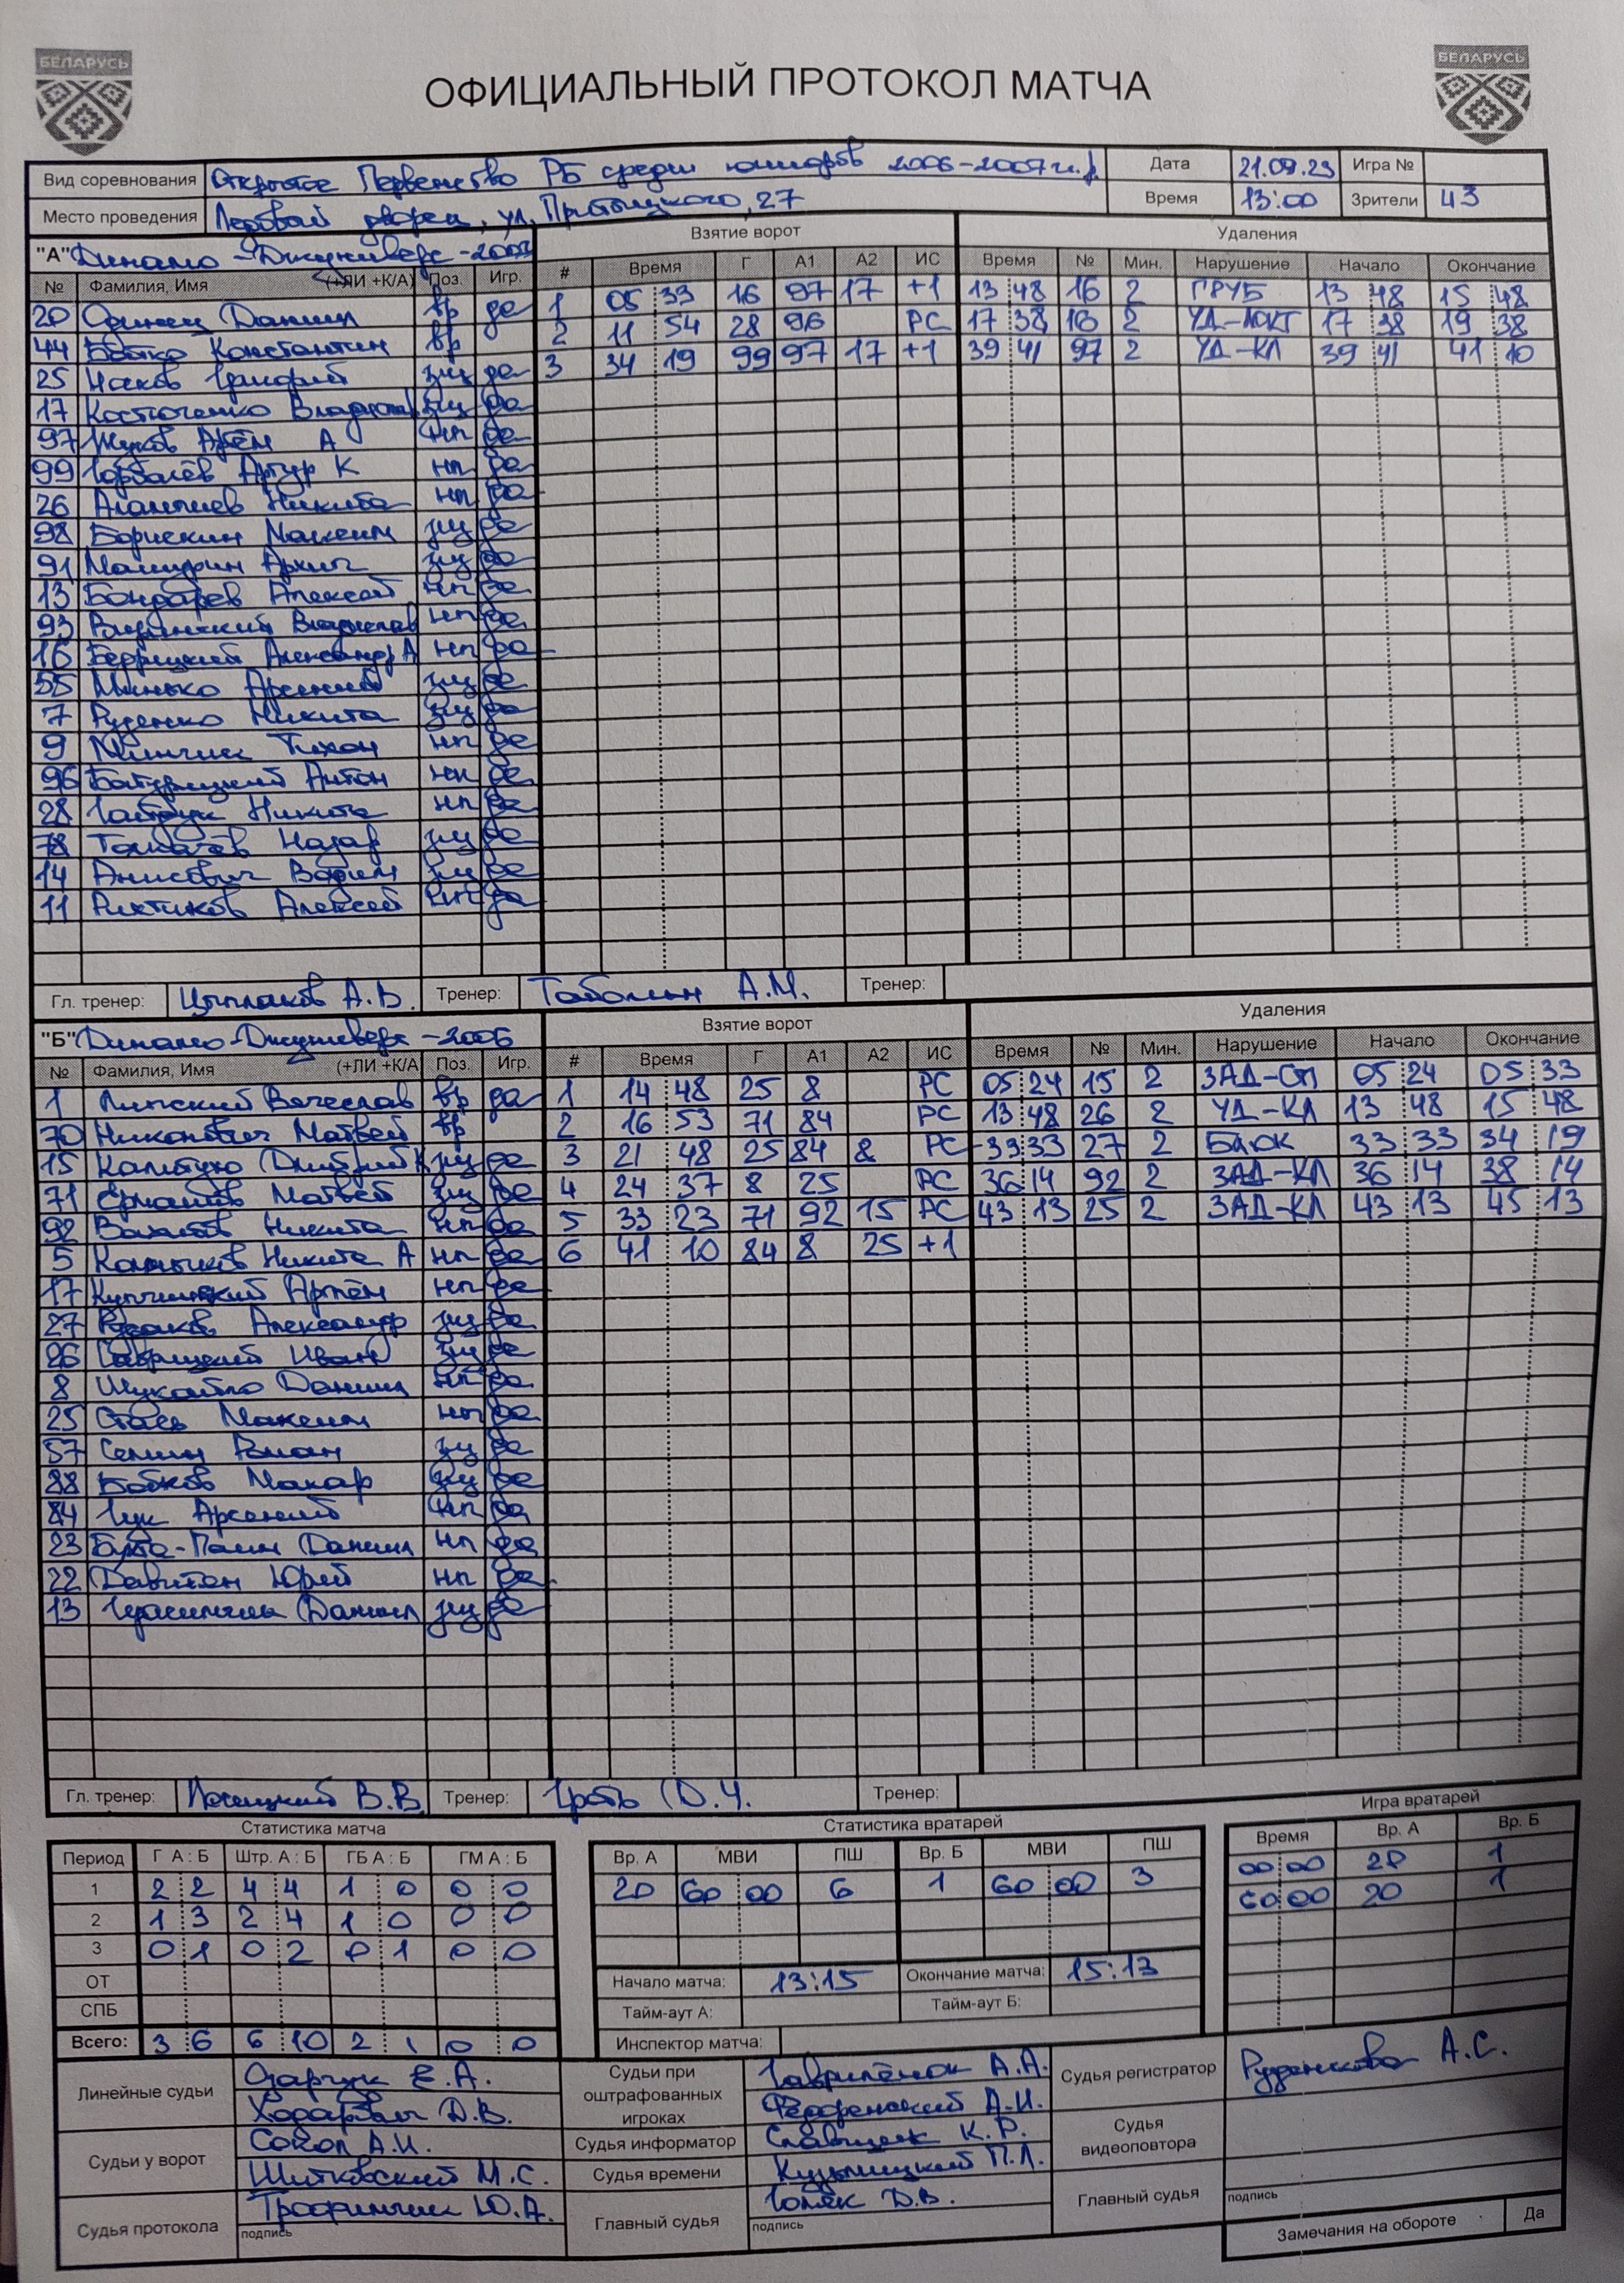 БЕЛАРУСЬ
ОФИЦИАЛЬНЫЙ ПРОТОКОЛ МАТЧА
БЕЛАРУСЬ
Вид соревнования Открытое Первенство РБ среди юниоров 2006-2007 г.р. Дата 21.09.23 Игра №
Место проведения Ледовый дворец, ул. Притыцкого, 27 Время 13:00 Зрители 43
"А" Динамо-Джуниверс-2007 Взятие ворот Удаления
№ Фамилия, Имя (+ЛИ +К/А) Поз. Игр. # Время Г А1 А2 ИС Время № Мин. Нарушение Начало Окончание
20 Одинец Даниил вр да 1 05:33 16 97 17 +1 13:48 16 2 ГРУБ 13:48 15:48
44 Бойко Константин вр 2 11:54 28 96 РС 17:38 16 2 УД-ЛОКТ 17:38 19:38
25 Григорий зщ да 3 34:19 99 97 17 +1 39:41 97 2 УД-КЛ 39:41 41:10
17 Костюченко Владислав зщ да
97 Жуков Артём А нп да
99 Горбалёв Артур К нп да
26 Никита нп да
98 Борискин Максим зщ да
91 Машурин зщ да
13 Бондарев Алексей нп да
93 Владислав нп да
16 Бедрицкий Александр А нп да
55 Минько Арсений зщ да
7 Руденко Никита зщ да
9 Минчик Тихон нп да
96 Батурицкий Антон нп да
28 Гайдук Никита нп да
78 Толкачёв Назар зщ да
14 Анисович Вадим зщ да
11 Рихтиков Алексей нп да
Гл. тренер: Цыплаков А.В. Тренер: Таболин А.М. Тренер:
"Б" Динамо-Джуниверс-2006 Взятие ворот Удаления
№ Фамилия, Имя (+ЛИ +К/А Поз. Игр. # Время Г А1 А2 ИС Время № Мин. Нарушение Начало Окончание
1 Липский Вячеслав вр да 1 14:48 25 8 РС 05:24 15 2 ЗАД-СП 05:24 05:33
70 Никонович Матвей вр 2 16:53 71 84 РС 13:48 26 2 УД-КЛ 13:48 15:48
15 Дмитрий К зщ да 3 21:48 25 84 8 РС 33:33 27 2 БЛОК 33:33 34:19
71 Ермашов Матвей зщ да 4 24:37 8 25 РС 36:14 92 2 ЗАД-КЛ 36:14 38:14
92 Никита нп да 5 33:23 71 92 15 РС 43:13 25 2 ЗАД-КЛ 43:13 45:13
5 Никита А нп да 6 41:10 84 8 25 +1
17 Купчинский Артём нп да
27 Русаков Александр зщ да
26 Савицкий Иван зщ да
8 Шукайло Даниил нп да
25 Стась Максим нп да
57 Селин Роман зщ да
88 Бойков Макар зщ да
84 Гук Арсений нп да
23 Даниил нп да
22 Давитян Юрий нп да
13 Герасимчик Даниил зщ да
Гл. тренер: В.В. Тренер: Тренер:
Статистика матча Статистика вратарей Игра вратарей
Период Г А : Б Штр. А : Б ГБ А : Б ГМ А : Б Вр. А МВИ ПШ Вр. Б МВИ ПШ Время Вр. А Вр. Б
1 2:2 4:4 1:0 0:0 20 60:00 6 1 60:00 3 00:00 20 1
2 1:3 2:4 1:0 0:0 60:00 20 1
3 0:1 0:2 0:1 0:0
ОТ Начало матча: 13:15 Окончание матча: 15:13
СПБ Тайм-аут А: Тайм-аут Б:
Всего: 3:6 6:10 2:1 0:0 Инспектор матча:
Линейные судьи Одарчук Е.А. Судьи при оштрафованных игроках Гаврилёнок А.А. Судья регистратор Руденкова А.С.
Ходарович Д.В. А.И.
Судьи у ворот Сокол А.И. Судья информатор Славщик К.Р. Судья видеоповтора
Шитковский М.С. Судья времени Кузьмицкий П.Л.
Судья протокола Трофимчик Ю.А. Главный судья Гопяк Д.В. Главный судья
подпись подпись подпись
Замечания на обороте Да